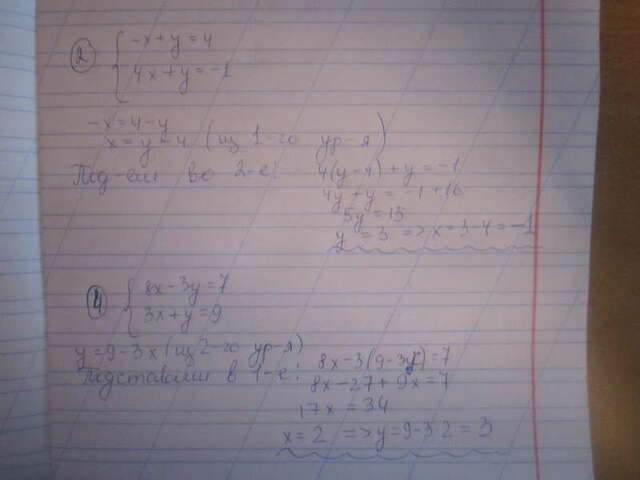 2 { -x+y=4
4x+y=-1
-x=4-y
x=y-4 (из 1-го ур-я)
Под-им во 2-е: 4(y-4)+y=-1
4y+y=-1+16
5y=15
y=3 => x=3-4=-1
4 { 8x-3y=7
3x+y=9
y=9-3x (из 2-го ур-я)
Подставим в 1-е: 8x-3(9-3x)=7
8x-27+9x=7
17x=34
x=2 => y=9-3·2=3